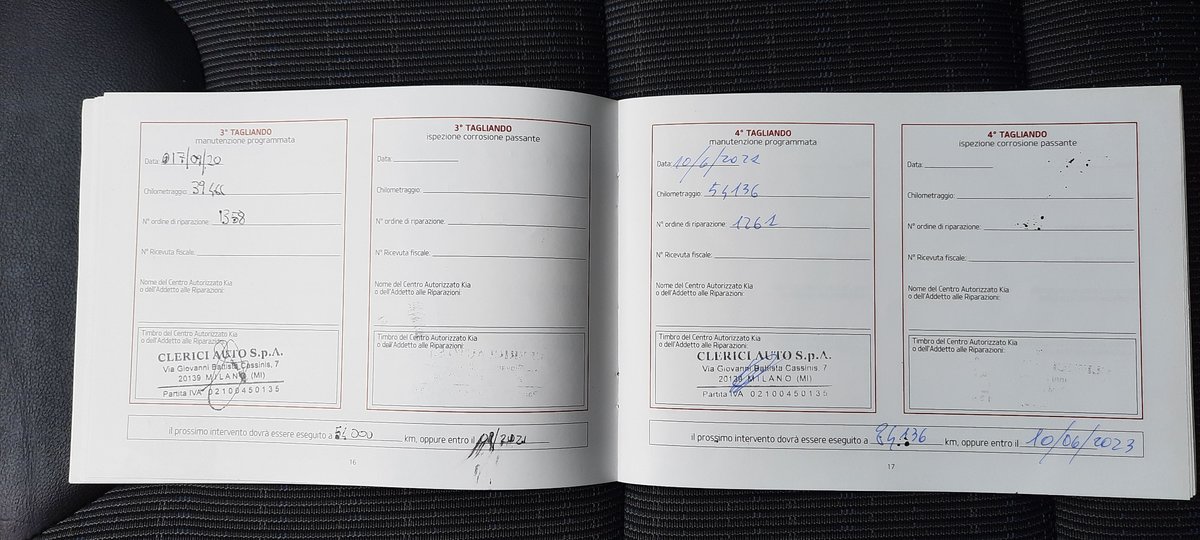 3° TAGLIANDO
manutenzione programmata
Data: 17/09/20
Chilometraggio:
N° ordine di riparazione: 1358
N° Ricevuta fiscale:
Nome del Centro Autorizzato Kia
o dell'Addetto alle Riparazioni:
Timbro del Centro Autorizzato Kia
o dell'Addetto alle Riparazioni:
CLERICI AUTO S.p.A.
Via Giovanni Battista Cassinis, 7
20139 MILANO (MI)
Partita IVA 02100450135
3° TAGLIANDO
ispezione corrosione passante
Data:
Chilometraggio:
N° ordine di riparazione:
N° Ricevuta fiscale:
Nome del Centro Autorizzato Kia
o dell'Addetto alle Riparazioni:
Timbro del Centro Autorizzato Kia
o dell'Addetto alle Riparazioni:
il prossimo intervento dovrà essere eseguito a 54000 km, oppure entro il /2021
16
4° TAGLIANDO
manutenzione programmata
Data: 10/6/2021
Chilometraggio: 54136
N° ordine di riparazione: 1261
N° Ricevuta fiscale:
Nome del Centro Autorizzato Kia
o dell'Addetto alle Riparazioni:
Timbro del Centro Autorizzato Kia
o dell'Addetto alle Riparazioni:
CLERICI AUTO S.p.A.
Via Giovanni Battista Cassinis, 7
20139 MILANO (MI)
Partita IVA 02100450135
4° TAGLIANDO
ispezione corrosione passante
Data:
Chilometraggio:
N° ordine di riparazione:
N° Ricevuta fiscale:
Nome del Centro Autorizzato Kia
o dell'Addetto alle Riparazioni:
Timbro del Centro Autorizzato Kia
o dell'Addetto alle Riparazioni:
il prossimo intervento dovrà essere eseguito a 84136 km, oppure entro il 10/06/2023
17